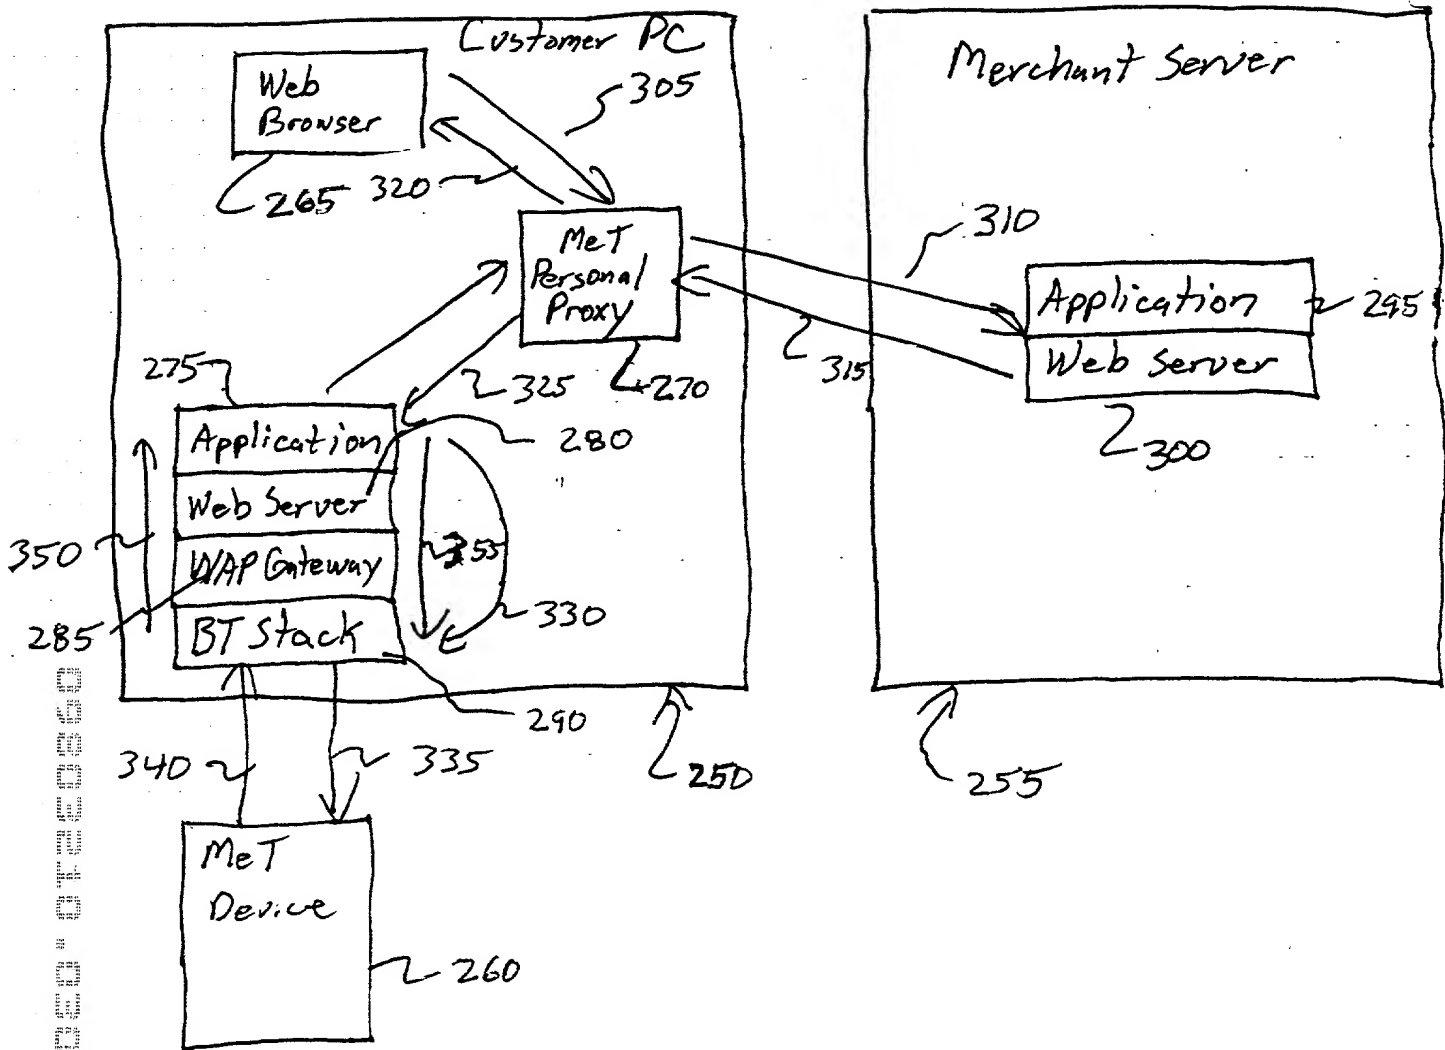 Customer PC
Merchant Server
Web
Browser
305
265
320
MeT
Personal
Proxy
310
Application
295
Web Server
315
300
275
325
270
Application
280
Web Server
350
WAP Gateway
355
285
BT Stack
330
290
340
335
250
255
MeT
Device
260